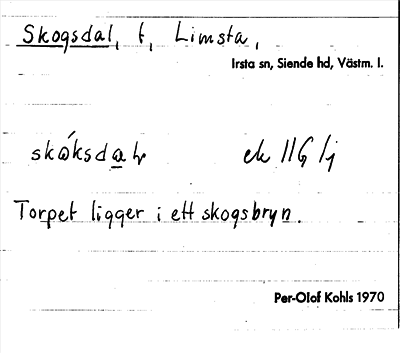 Skogsdal, t, Limsta,
Irsta sn, Siende hd, Västm. l.
skǻksdal
ek
Torpet ligger i ett skogsbryn.
Per-Olof Kohls 1970